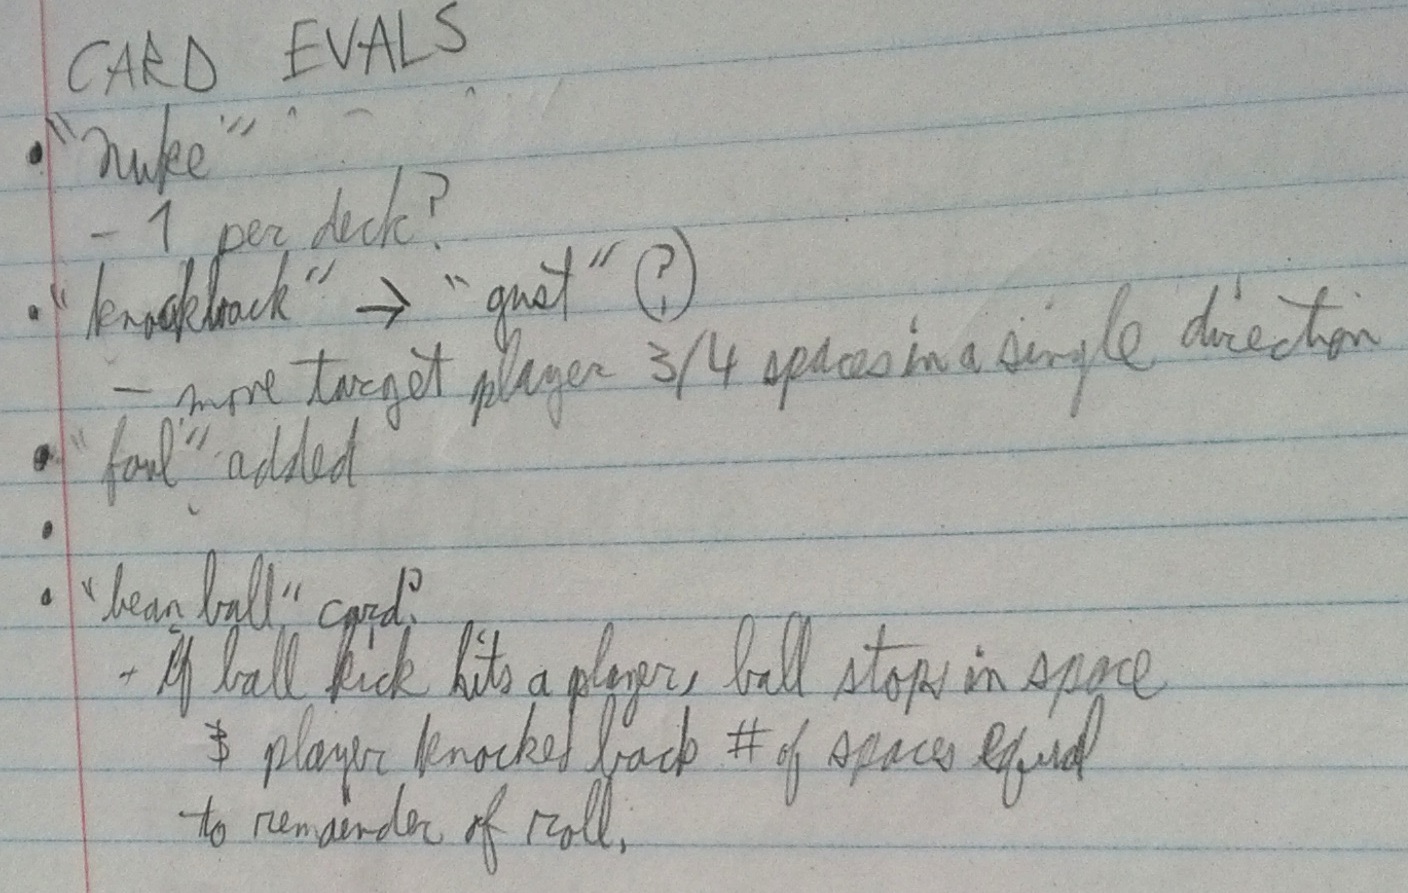 CARD EVALS
• "nuke"
- 1 per deck?
• "knockback" → "gust" (?)
- move target player 3/4 spaces in a single direction
• "foul" added
•
• "bean ball" card?
- If ball kick hits a player, ball stops in space
& player knocked back # of spaces equal
to remainder of roll.